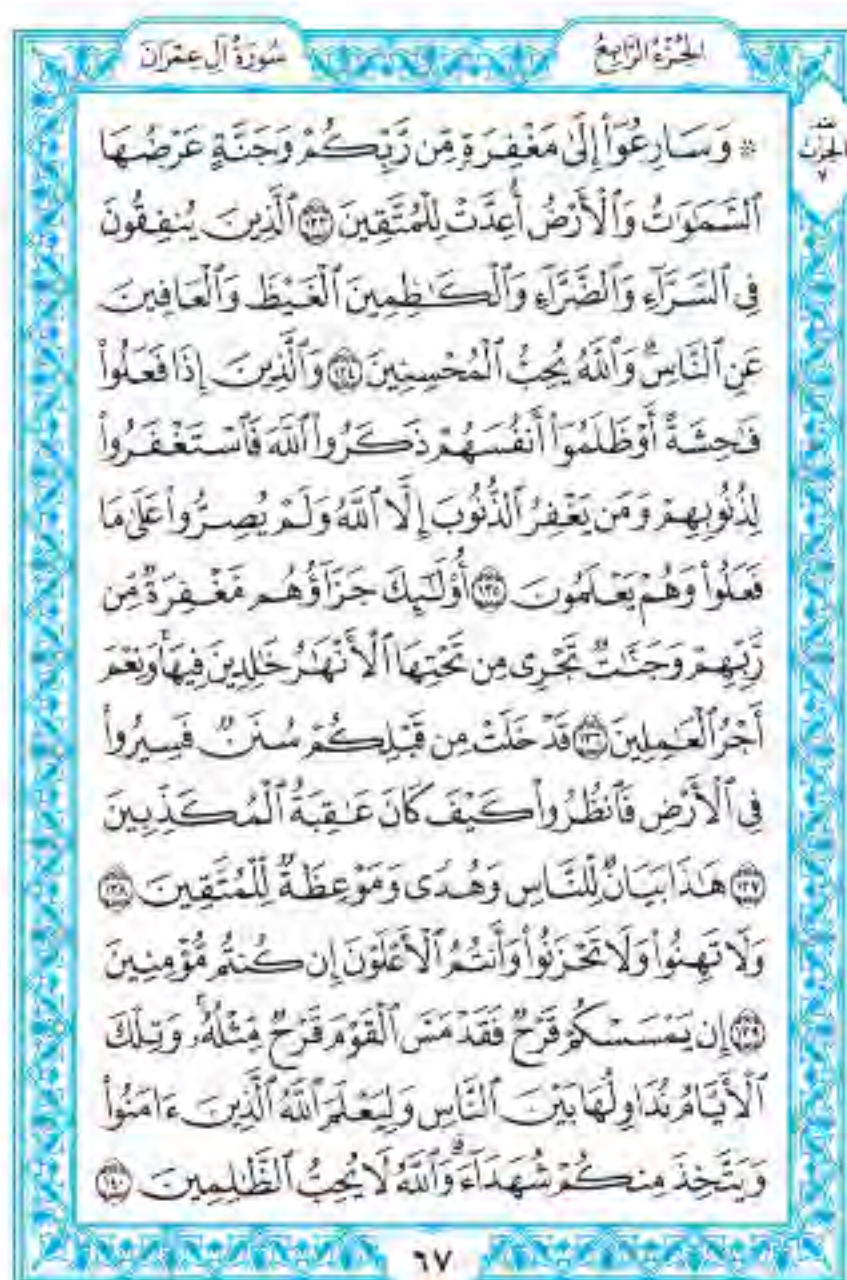 الجُزْءُ الرَّابِعُ
سُورَةُ آلِ عِمْرَانَ
۞ وَسَارِعُوٓاْ إِلَىٰ مَغْفِرَةٖ مِّن رَّبِّكُمۡ وَجَنَّةٍ عَرۡضُهَا
ٱلسَّمَٰوَٰتُ وَٱلۡأَرۡضُ أُعِدَّتۡ لِلۡمُتَّقِينَ ١٣٣ ٱلَّذِينَ يُنفِقُونَ
فِي ٱلسَّرَّآءِ وَٱلضَّرَّآءِ وَٱلۡكَٰظِمِينَ ٱلۡغَيۡظَ وَٱلۡعَافِينَ
عَنِ ٱلنَّاسِۗ وَٱللَّهُ يُحِبُّ ٱلۡمُحۡسِنِينَ ١٣٤ وَٱلَّذِينَ إِذَا فَعَلُواْ
فَٰحِشَةً أَوۡ ظَلَمُوٓاْ أَنفُسَهُمۡ ذَكَرُواْ ٱللَّهَ فَٱسۡتَغۡفَرُواْ
لِذُنُوبِهِمۡ وَمَن يَغۡفِرُ ٱلذُّنُوبَ إِلَّا ٱللَّهُ وَلَمۡ يُصِرُّواْ عَلَىٰ مَا
فَعَلُواْ وَهُمۡ يَعۡلَمُونَ ١٣٥ أُوْلَٰٓئِكَ جَزَآؤُهُم مَّغۡفِرَةٞ مِّن
رَّبِّهِمۡ وَجَنَّٰتٞ تَجۡرِي مِن تَحۡتِهَا ٱلۡأَنۡهَٰرُ خَٰلِدِينَ فِيهَاۚ وَنِعۡمَ
أَجۡرُ ٱلۡعَٰمِلِينَ ١٣٦ قَدۡ خَلَتۡ مِن قَبۡلِكُمۡ سُنَنٞ فَسِيرُواْ
فِي ٱلۡأَرۡضِ فَٱنظُرُواْ كَيۡفَ كَانَ عَٰقِبَةُ ٱلۡمُكَذِّبِينَ
١٣٧ هَٰذَا بَيَانٞ لِّلنَّاسِ وَهُدٗى وَمَوۡعِظَةٞ لِّلۡمُتَّقِينَ ١٣٨
وَلَا تَهِنُواْ وَلَا تَحۡزَنُواْ وَأَنتُمُ ٱلۡأَعۡلَوۡنَ إِن كُنتُم مُّؤۡمِنِينَ
١٣٩ إِن يَمۡسَسۡكُمۡ قَرۡحٞ فَقَدۡ مَسَّ ٱلۡقَوۡمَ قَرۡحٞ مِّثۡلُهُۥۚ وَتِلۡكَ
ٱلۡأَيَّامُ نُدَاوِلُهَا بَيۡنَ ٱلنَّاسِ وَلِيَعۡلَمَ ٱللَّهُ ٱلَّذِينَ ءَامَنُواْ
وَيَتَّخِذَ مِنكُمۡ شُهَدَآءَۗ وَٱللَّهُ لَا يُحِبُّ ٱلظَّٰلِمِينَ ١٤٠
٦٧